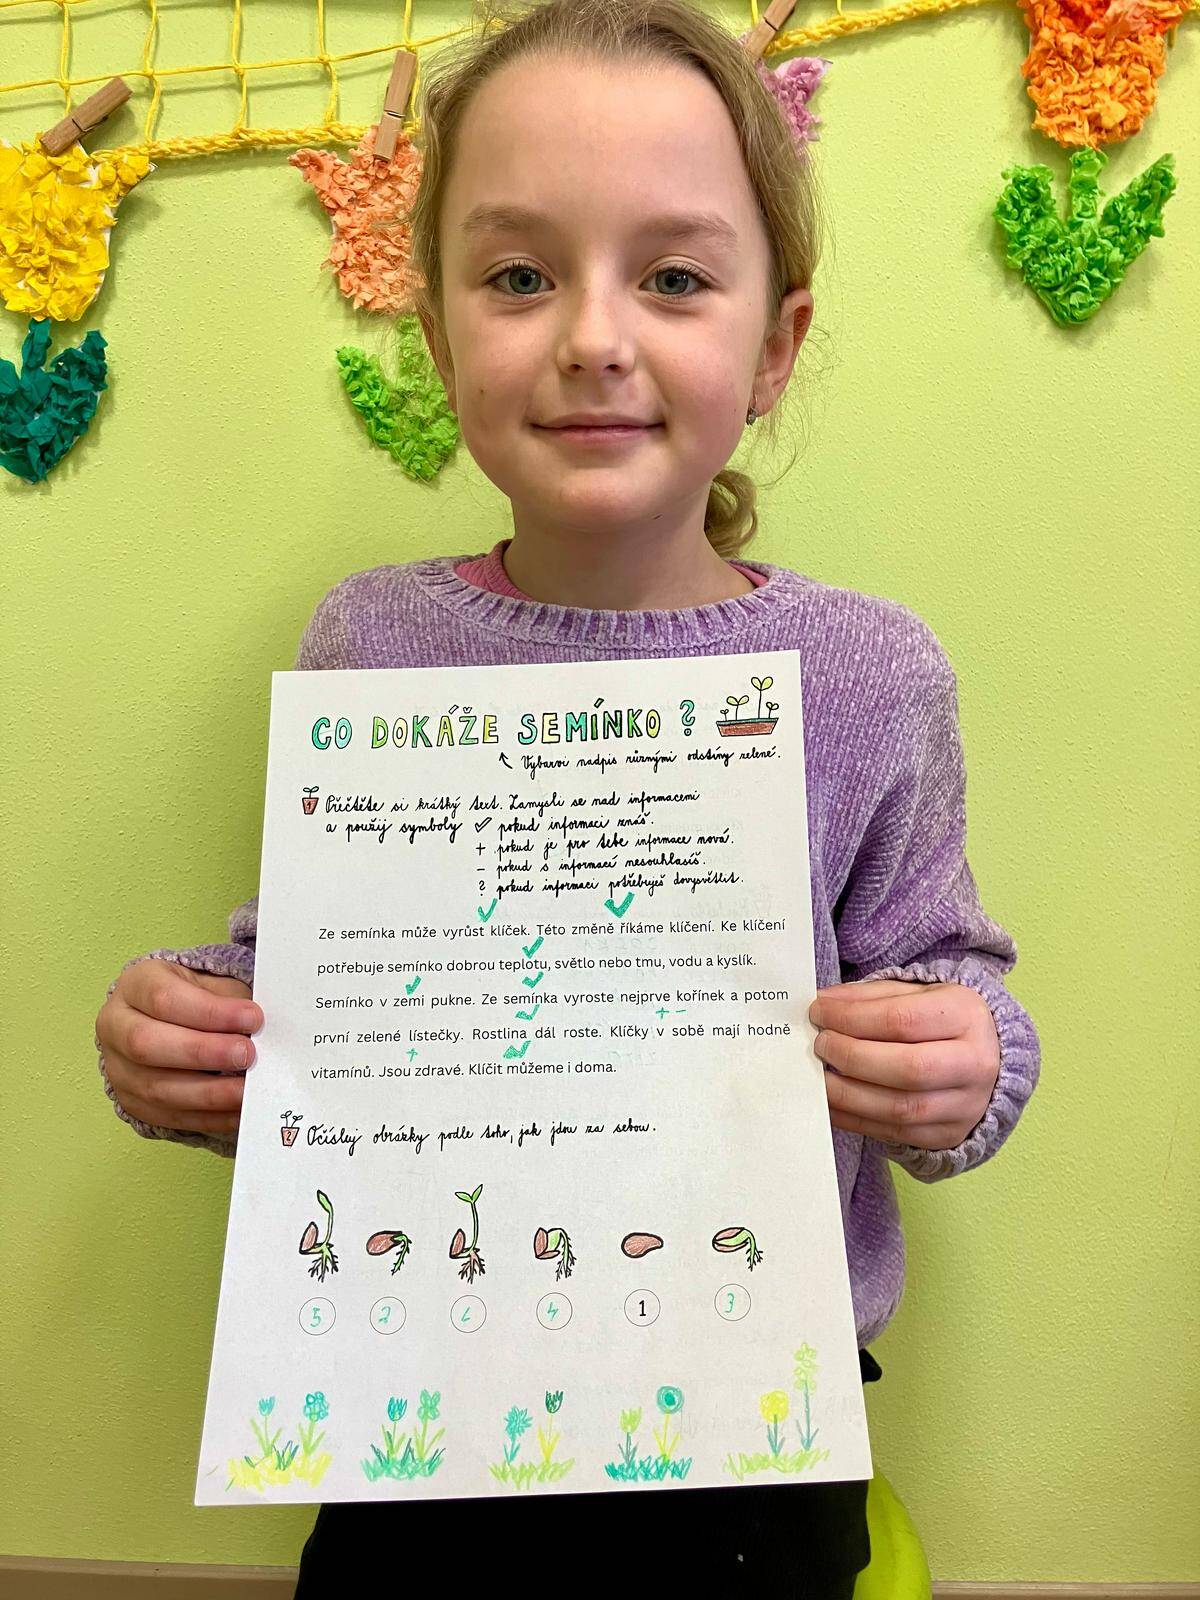 CO DOKÁŽE SEMÍNKO ?
Vybarvi nadpis různými odstíny zelené.
1 Přečtěte si krátký text. Zamysli se nad informacemi
a použij symboly ✓ pokud informaci znáš.
+ pokud je pro tebe informace nová.
– pokud s informací nesouhlasíš.
? pokud informaci potřebuješ dovysvětlit.
✓ ✓
Ze semínka může vyrůst klíček. Této změně říkáme klíčení. Ke klíčení
✓
potřebuje semínko dobrou teplotu, světlo nebo tmu, vodu a kyslík.
✓ ✓
Semínko v zemi pukne. Ze semínka vyroste nejprve kořínek a potom
✓ + –
první zelené lístečky. Rostlina dál roste. Klíčky v sobě mají hodně
+ ✓
vitamínů. Jsou zdravé. Klíčit můžeme i doma.
2 Očísluj obrázky podle toho, jak jdou za sebou.
5 2 6 4 1 3